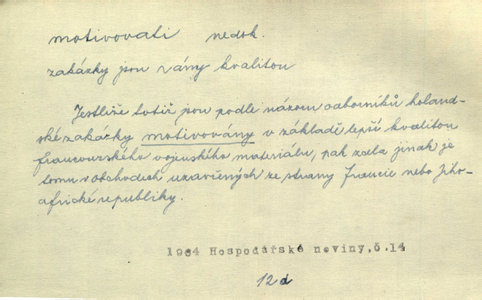 motivovati nedok.
zakázky jsou m-vány kvalitou
Jestliže totiž jsou podle názoru odborníků holand-
ské zakázky motivovány v základě lepší kvalitou
francouzského vojenského materiálu, pak zcela jinak je
tomu v obchodech uzavřených ze strany Francie nebo Jiho-
africké republiky.
1964 Hospodářské noviny,č.14
12d